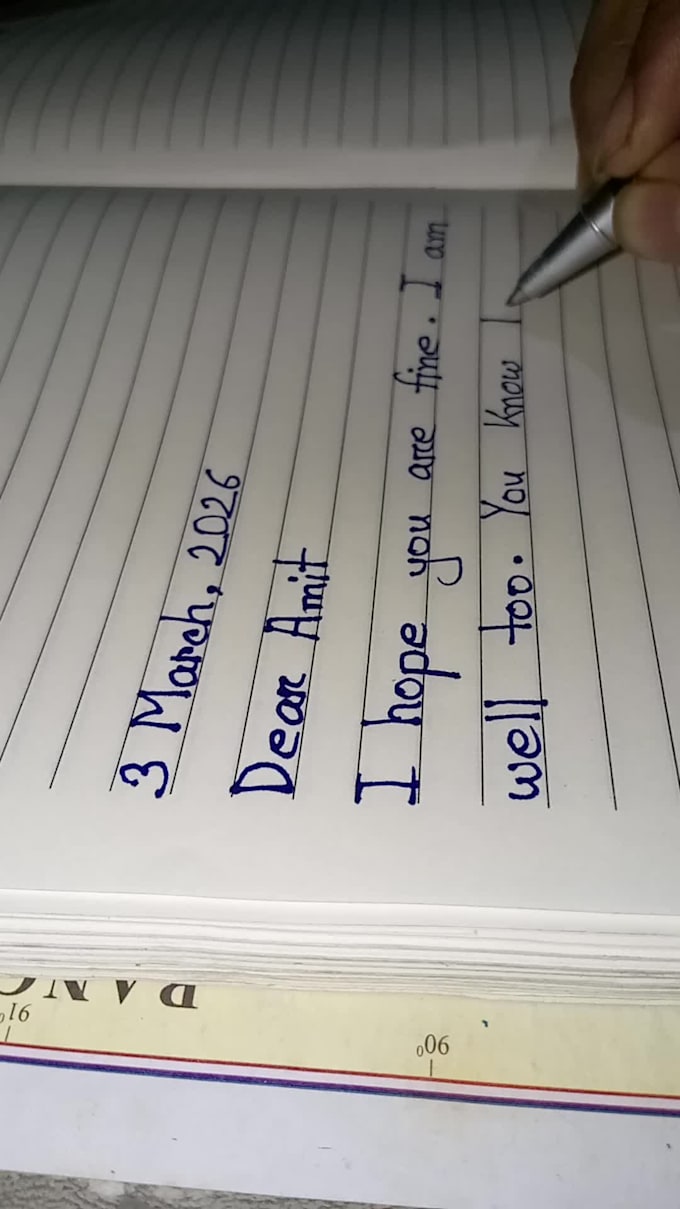 3 March, 2026
Dear Amit
I hope you are fine. I am
well too. You know I
91°
90°